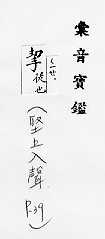 彙音寶鑑
挈
(堅上入聲
P.39)